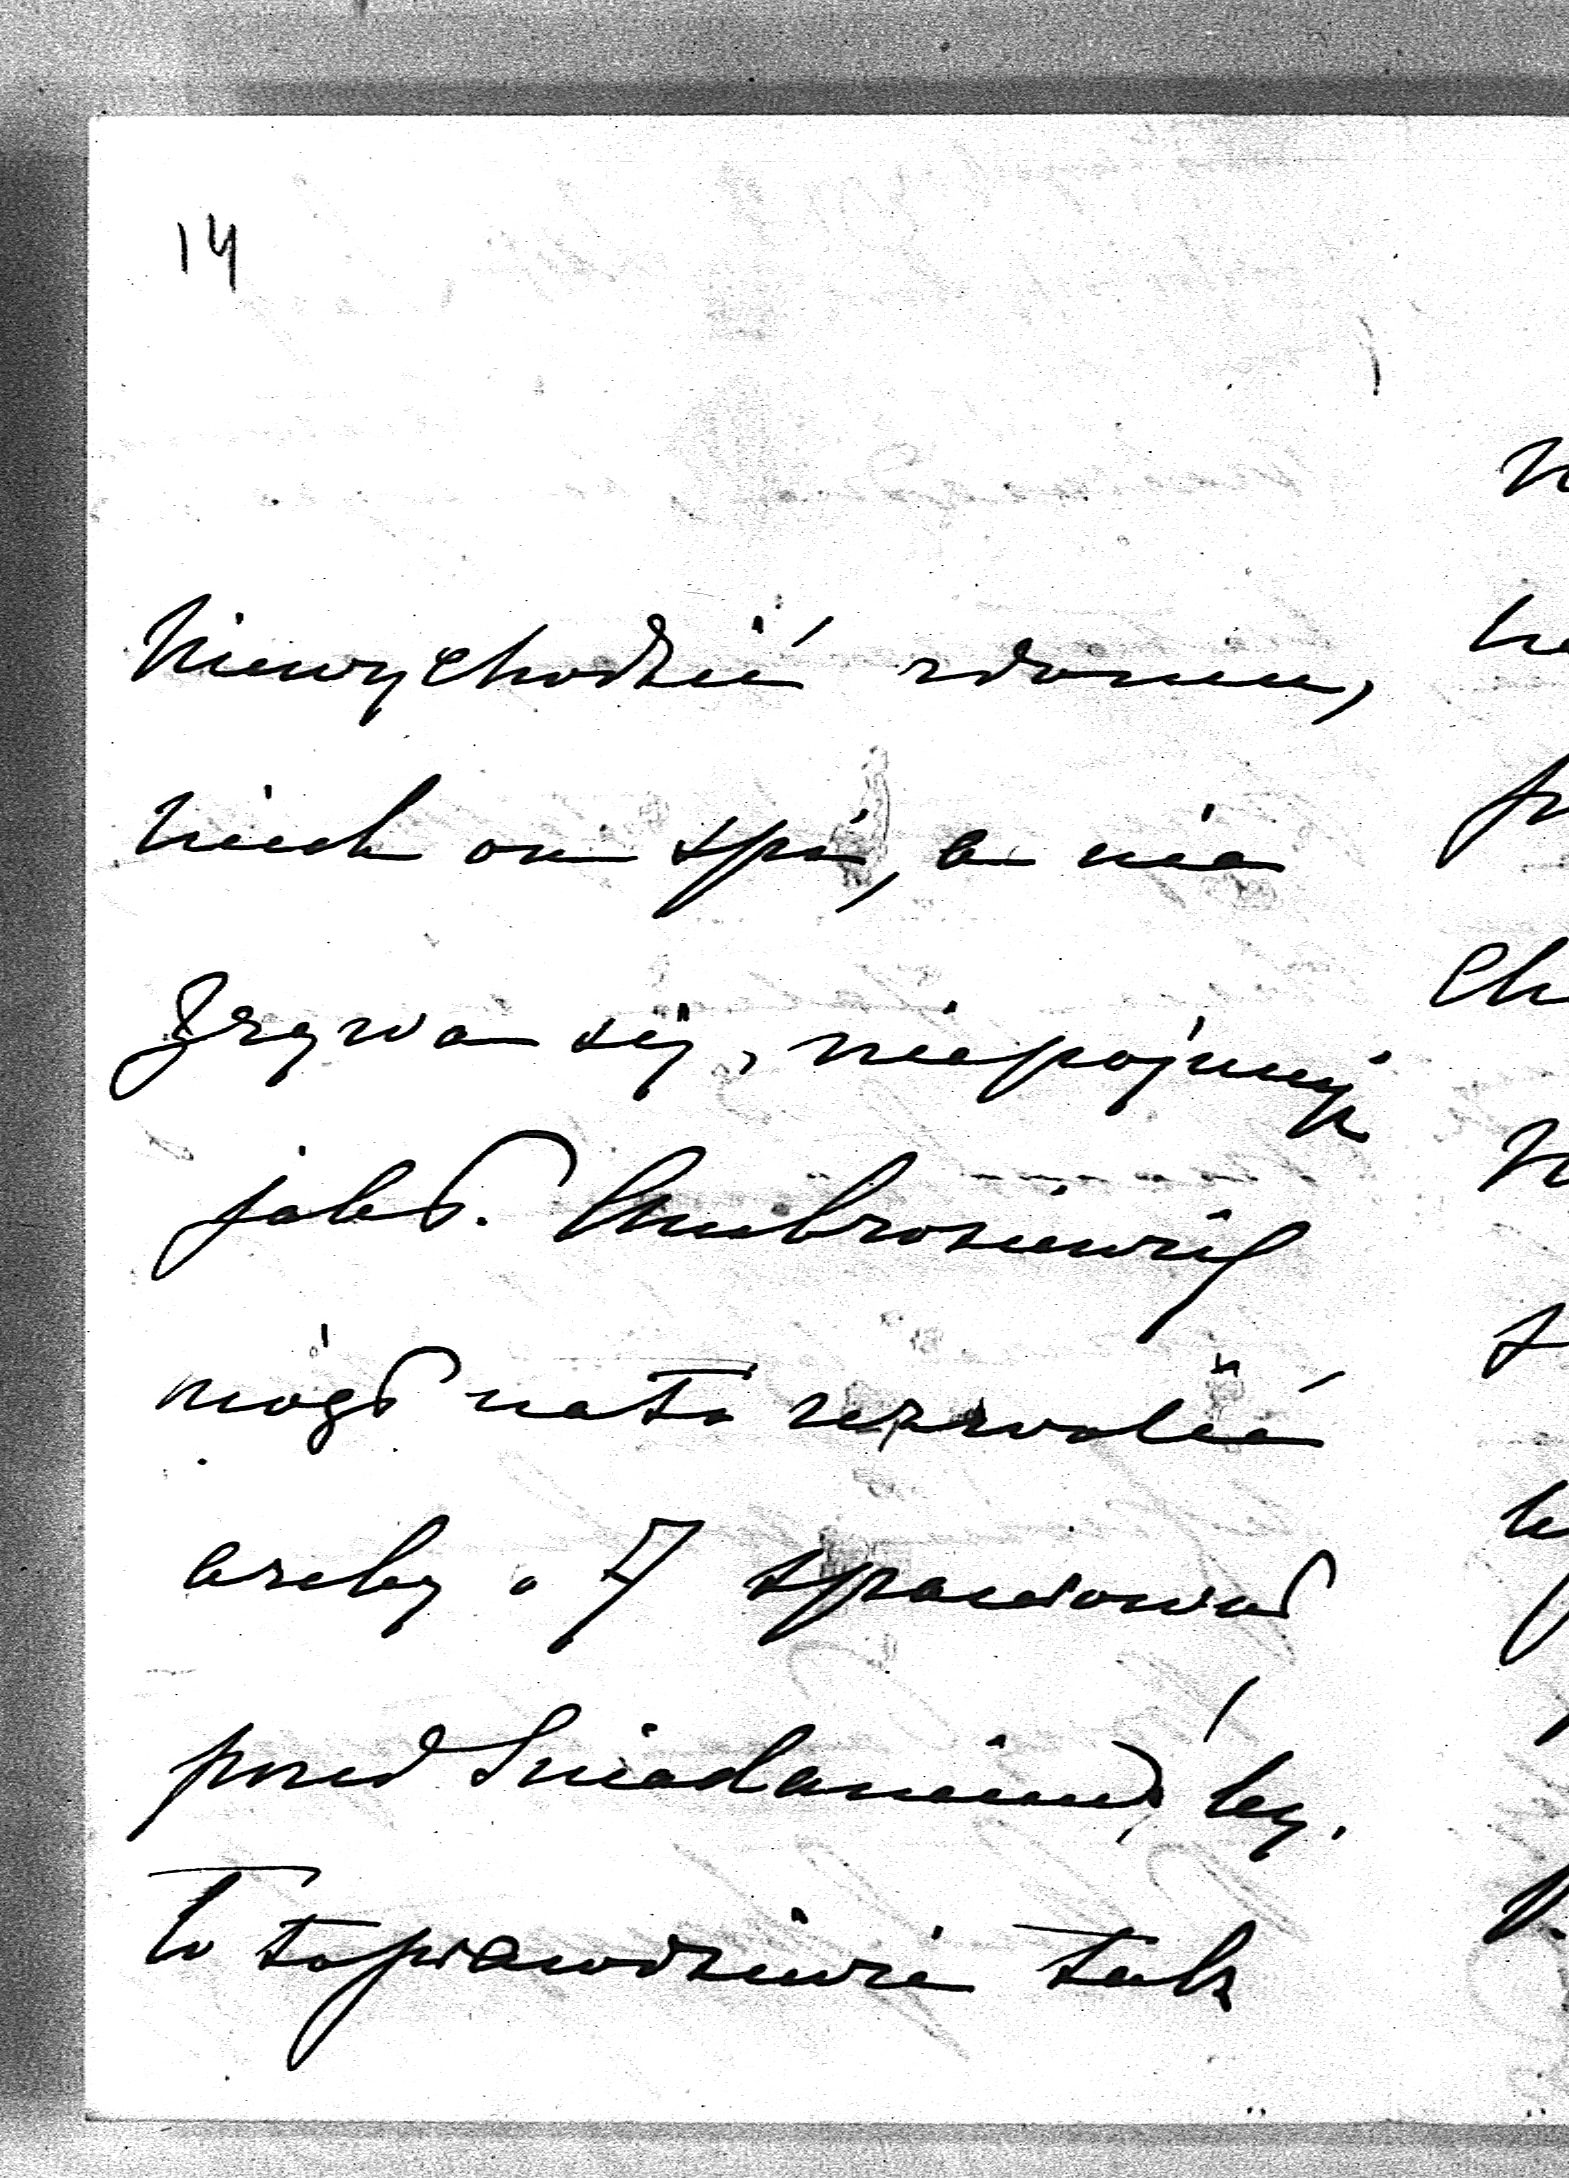 14
Niewychodzić zdomu,
niech on śpi, a nie
Zrywa się, niepojmuję
jak P. Ambrosiewicz
mógł nato zezwolić
azeby o 7 spacerował
przed Śniadaniem, by.
to toprawdziwie tak